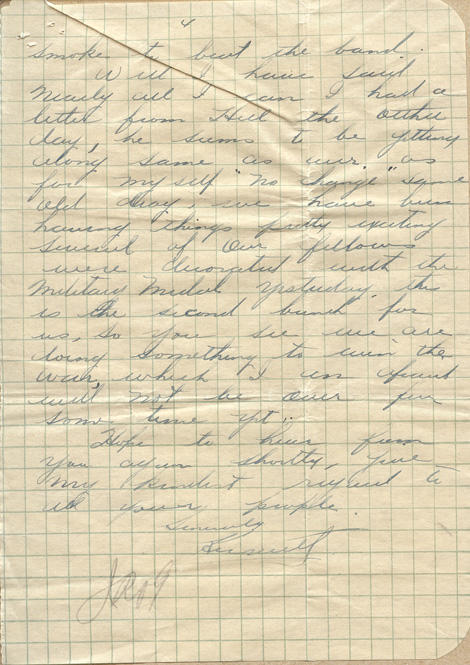 4
smoke to beat the band.
Well I have said
nearly all I can I had a
letter from Hill the other
day, he seems to be getting
along same as ever. as
for myself "no change" same
old day, we have been
having things pretty exciting
several of our fellows
were decorated with the
Military Medal yesterday, this
is the second bunch for
us, so you see we are
doing something to win the
war, which I am afraid
will not be over for
some time yet.
Hope to hear from
you again shortly, give
my kindest regard to
all your people.
Sincerely